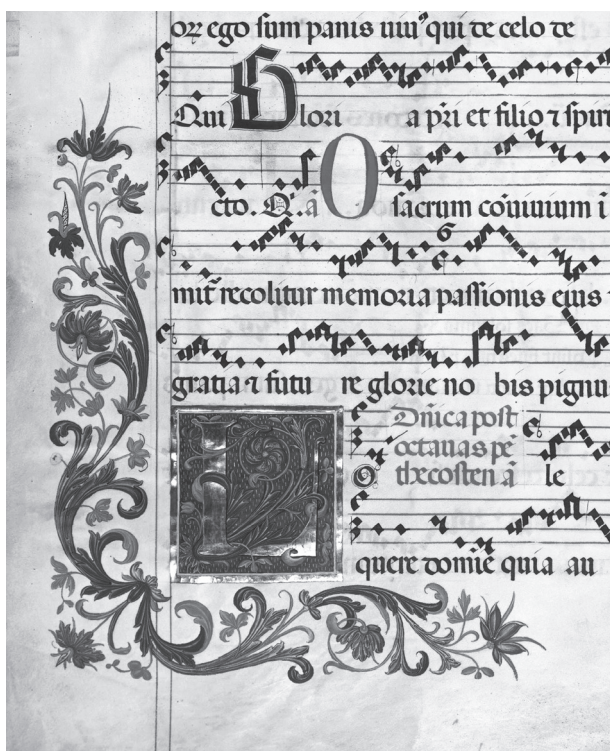 or ego sum panis uiu⁹ qui de celo de
Qui Glori a pri et filio ⁊ spirit
cto Q. a O sacrum cōuiuium i
mit recolitur memoria passionis eius
gratia ⁊ futu re glorie no bis pignu
Dnica post
octauas pē
thecosten a le
L
quere domie quia au